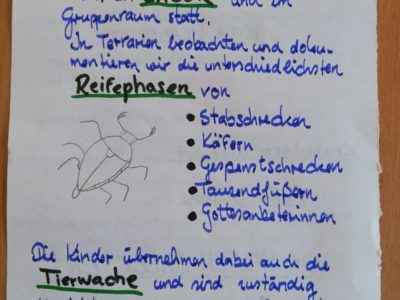 und im
Gruppenraum statt.
In Terrarien beobachten und doku-
mentieren wir die unterschiedlichsten
Reifephasen von
• Stabschrecken
• Käfern
• Gespenstschrecken
• Tausendfüßern
• Gottesanbeterinnen
Die Kinder übernehmen dabei auch die
Tierwache und sind zuständig